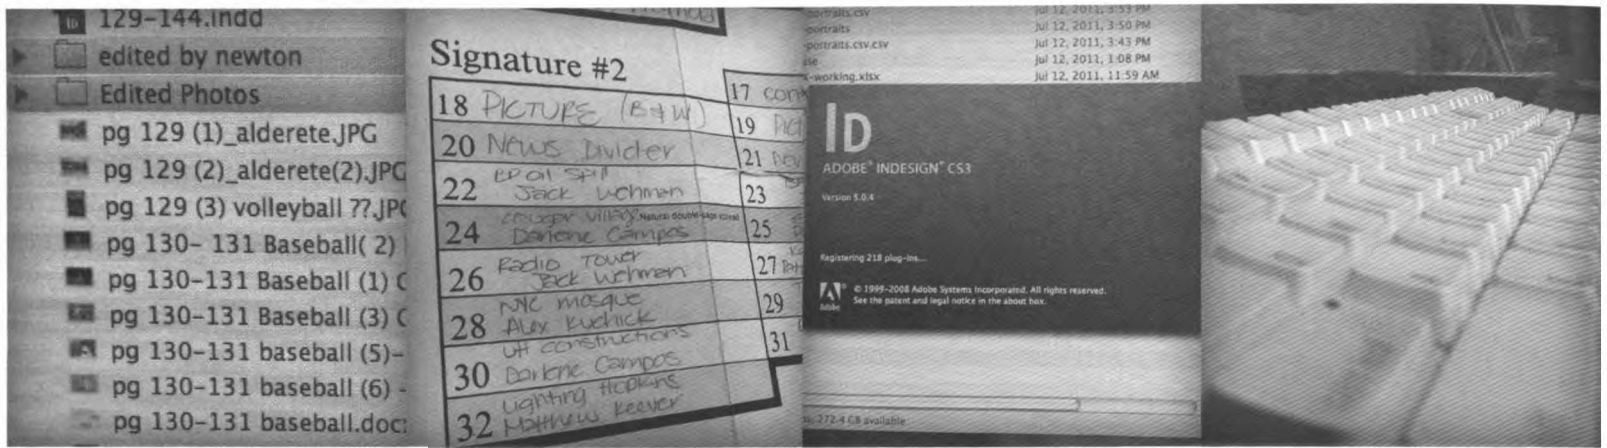 129-144.indd
edited by newton
Edited Photos
pg 129 (1)_alderete.JPG
pg 129 (2)_alderete(2).JPG
pg 129 (3) volleyball ??.JPG
pg 130- 131 Baseball( 2)
pg 130-131 Baseball (1) C
pg 130-131 Baseball (3) C
pg 130-131 baseball (5)-
pg 130-131 baseball (6) -
pg 130-131 baseball.doc
Signature #2
18 PICTURE (B&W)
20 News Divider
22 BP Oil Spill
Jack Wehman
24 Natural double-page spread
Darlene Campos
26 Radio Tower
Jack Wehman
28 NYC mosque
Alex Kuchick
30 UH constructions
Darlene Campos
32 Lighting Hopkins
Matthew Keever
17
19
21
23
25
27
29
31
portraits.csv Jul 12, 2011, 3:53 PM
portraits Jul 12, 2011, 3:50 PM
portraits.csv.csv Jul 12, 2011, 3:43 PM
Jul 12, 2011, 1:08 PM
-working.xlsx Jul 12, 2011, 11:59 AM
ID
ADOBE® INDESIGN® CS3
Version 5.0.4
Registering 218 plug-ins...
Adobe
© 1999-2008 Adobe Systems Incorporated. All rights reserved.
See the patent and legal notice in the about box.
272.4 GB available